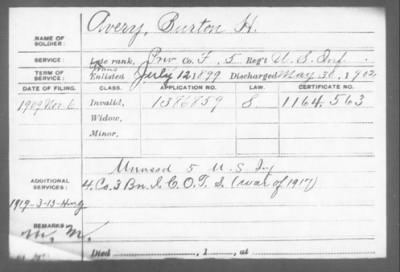 Avery, Burton H.
NAME OF SOLDIER:
SERVICE: Late rank, Priv Co. F, 5 Reg't U.S. Inf.
TERM OF SERVICE: Enlisted July 12 1899 Discharged May 30, 1902
DATE OF FILING. CLASS. APPLICATION NO. LAW. CERTIFICATE NO.
1909 Nov 6 Invalid, 1386859 8 1164,563
Widow,
Minor,
ADDITIONAL SERVICES: 5 U S Inf
4 Co. 3 Bn. I. C. O. T. S. (war of 1917)
1919-3-13
REMARKS:
Died , 1 , at